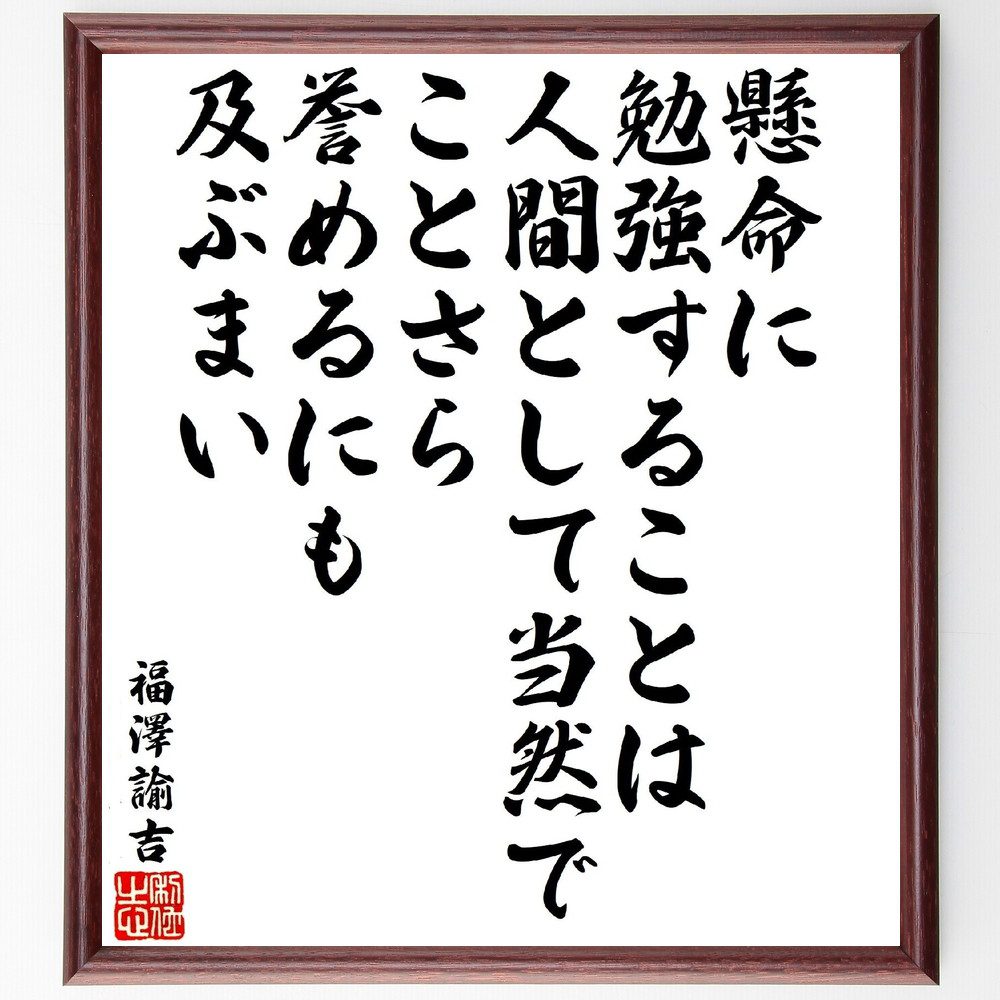 懸命に
勉強することは
人間として当然で
ことさら
誉めるにも
及ぶまい
福澤諭吉